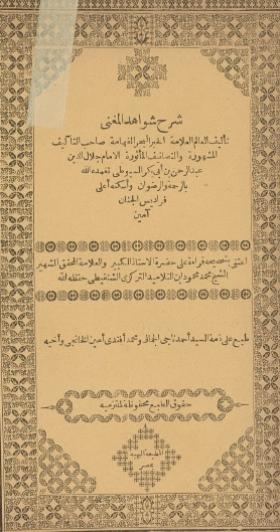 شرح شواهد المغنى
تأليف العالم العلامة الحبر البحر الفهامة صاحب التآليف
المشهورة والتصانيف المأثورة الامام جلال الدين
عبد الرحمن بن أبى بكر السيوطى تغمده الله
بالرحمة والرضوان وأسكنه أعلى
فراديس الجنان
آمين
اعتنى بتصحيحه قراءة على حضرة الاستاذ الكبير والعلامة المحقق الشهير
الشيخ محمد محمود ابن التلاميد التركزى الشنقيطى حفظه الله
طبع على ذمة السيد أحمد ناجى الجمالى ومحمد أفندى أمين الخانجى وأخيه
حقوق الطبع محفوظة لملتزميه
المطبعة البهية
بمصر